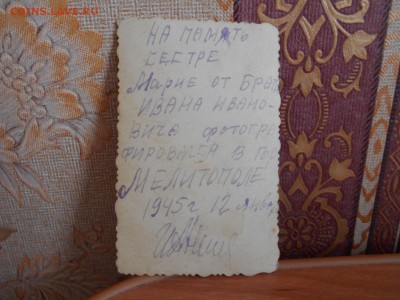 COINS.LAVE.RU
НА ПАМЯТЬ
СЕСТРЕ
Марие от Брата
ИВАНА ИВАНО-
ВИЧА фотогра-
фировался в гор
МЕЛИТОПОЛЕ
1945 г 12 янва